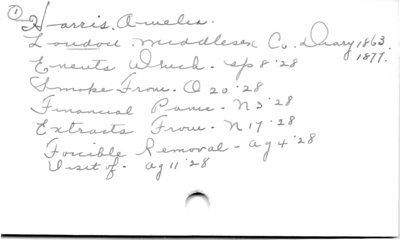 ① Harris, Amelia.
London, Middlesex Co. Diary 1863
1877.
Events Which - Sp 8 '28
Smoke From - O 20 '28
Financial Panic - N 3 '28
Extracts From - N 17 '28
Forcible Removal - Ag 4 '28
Visit of - Ag 11 '28